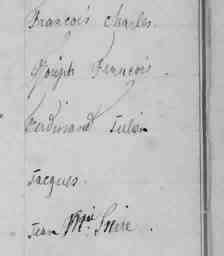 François Charles.
Joseph François.
Ferdinand Julien
Jacques.
Jean Mie